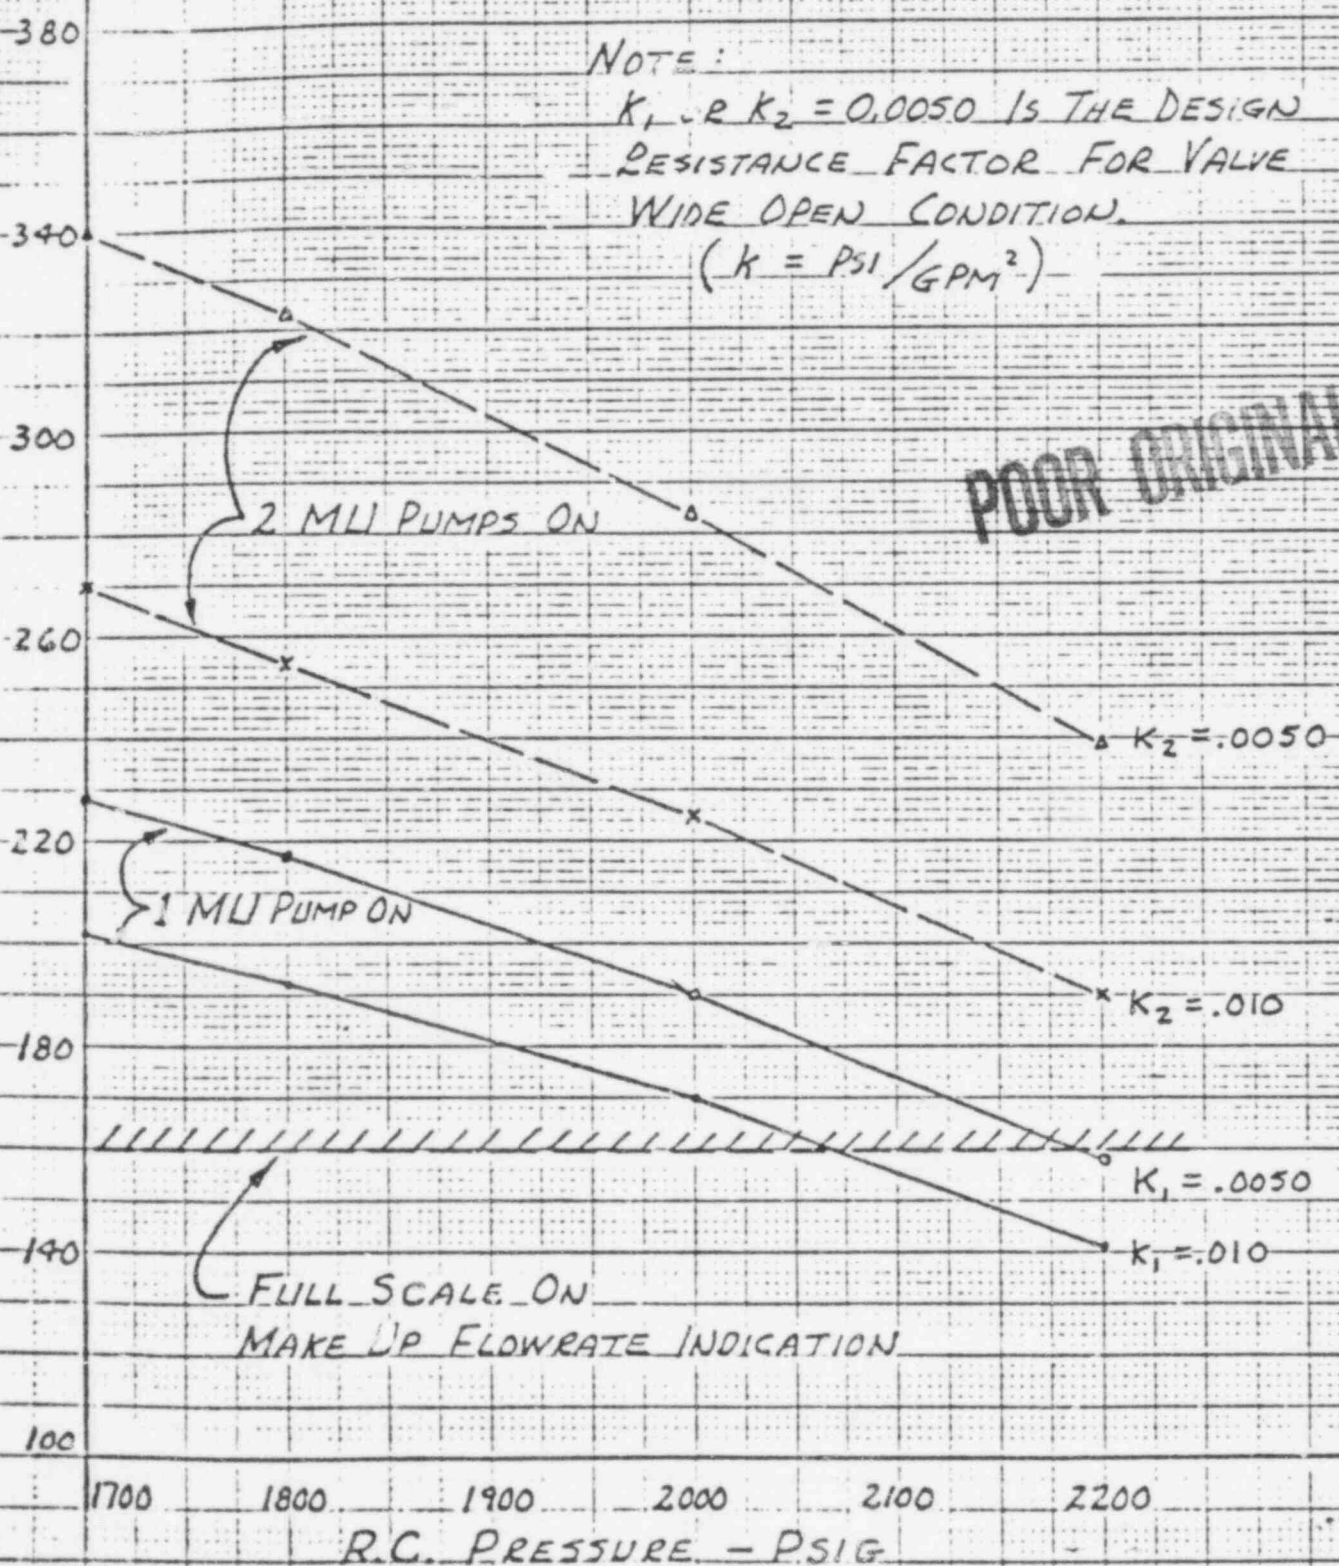 380
NOTE:
K₁ OR K₂ = 0.0050 IS THE DESIGN
RESISTANCE FACTOR FOR VALVE
WIDE OPEN CONDITION.
(K = PSI/GPM²)
340
300
POOR ORIGINAL
2 MU PUMPS ON
260
K₂ = .0050
220
1 MU PUMP ON
K₂ = .010
180
K₁ = .0050
140
K₁ = .010
FULL SCALE ON
MAKE UP FLOWRATE INDICATION
100
1700 1800 1900 2000 2100 2200
R.C. PRESSURE - PSIG